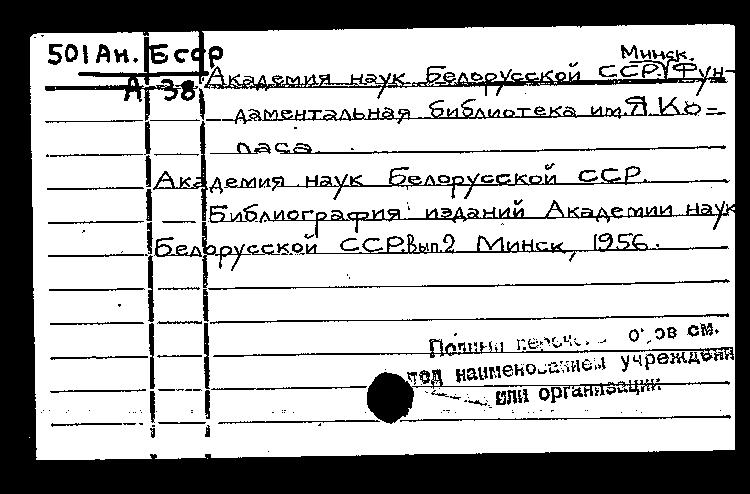 501 Ан. Бсср
А 38
Минск.
Академия наук Белорусской ССР. Фун-
даментальная библиотека им. Я. Ко=
ласа
Академия наук Белорусской ССР.
Библиография изданий Академии наук
Белорусской ССР. Вып. 2 Минск, 1956.
Полный см.
под наименованием учреждения
или организации